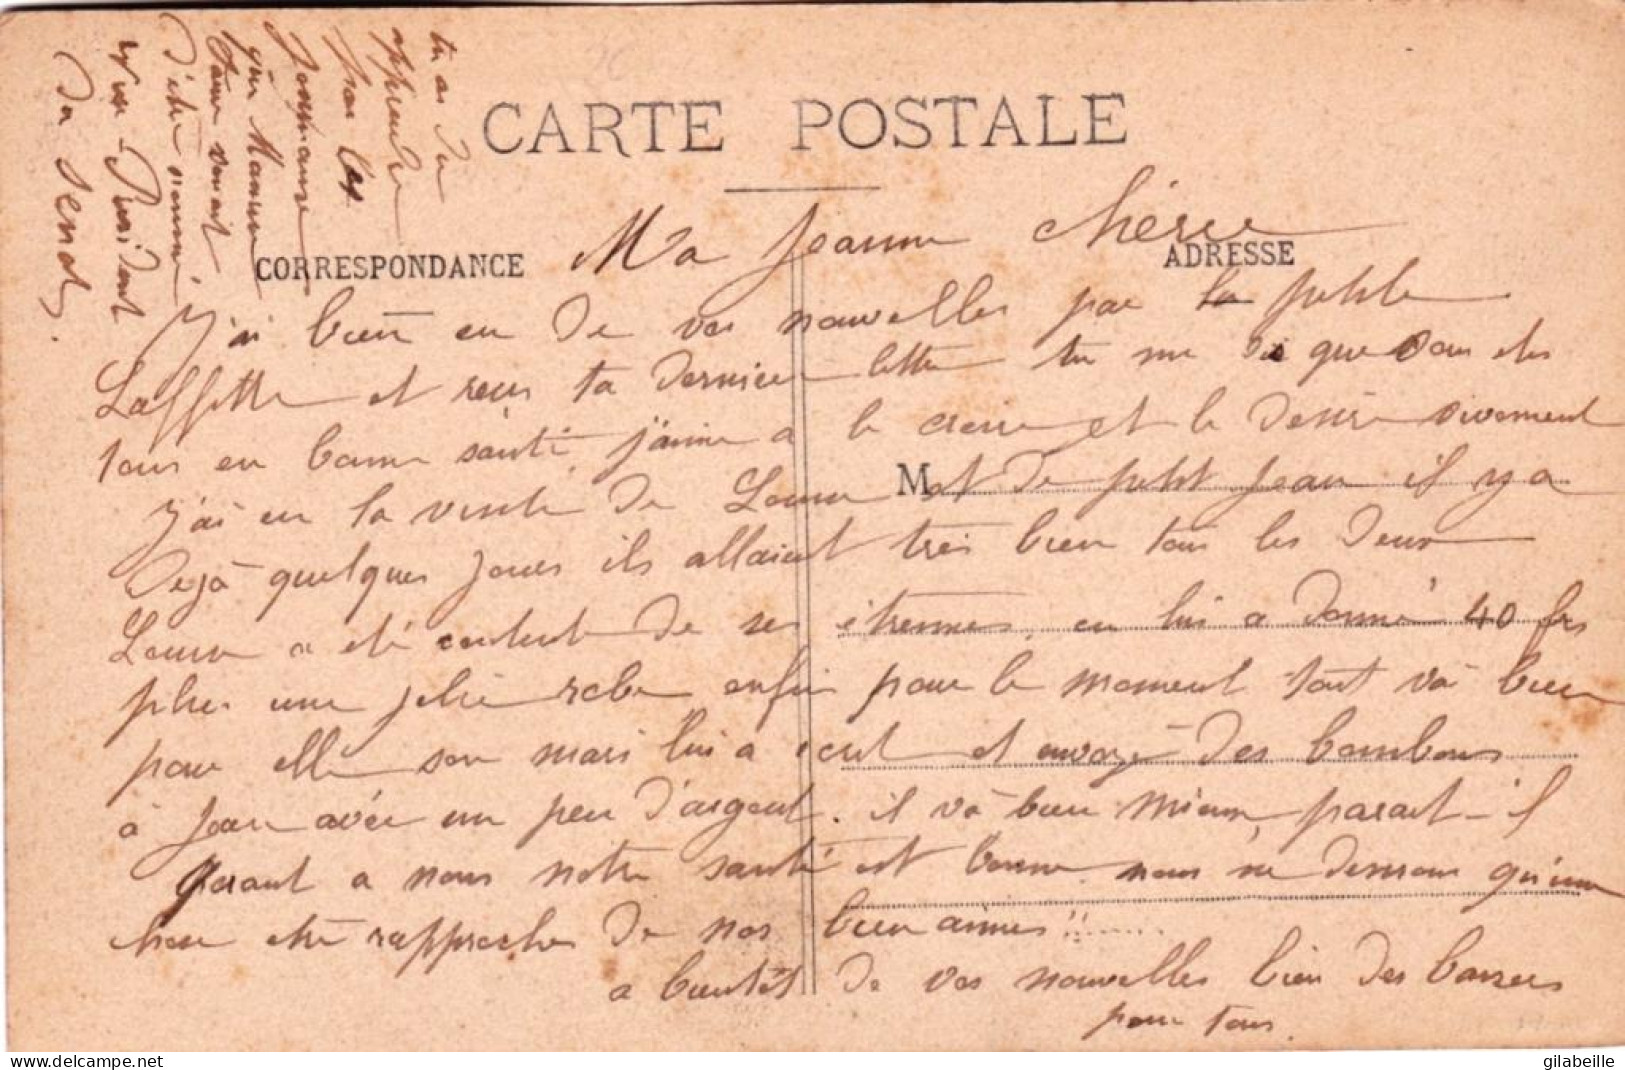 CARTE POSTALE
CORRESPONDANCE
ADRESSE
Ma Jeanne chérie
J'ai bien eu de vos nouvelles par la petite
Laffitte et reçus ta dernière lettre tu me dis que vous etes
tous en bonne santé, j'aime a le croire et le desire vivement
M
J'ai eu la visite de Louise et de petit Jean il y a
Dejà quelques jours ils allaient très bien tous les deux
Louise a eté contente de ses étrennes, on lui a donné 40 frs
plus une jolie robe enfin pour le moment tout và bien
pour elle son mari lui a écrit et envoyé des bombons
à Jean avec un peu d'argent. il và bien mieux, parait-il
Quant a nous notre santé est bonne nous ne desirons qu'une
chose etre rapprocher de nos bien aimés!!......
a bientôt de vos nouvelles bien des baisers
pour tous.
tu as du
apprendre
par les
journaux
que
venait
d'être nommé
Vice-Président
du Senat.
gilabeille